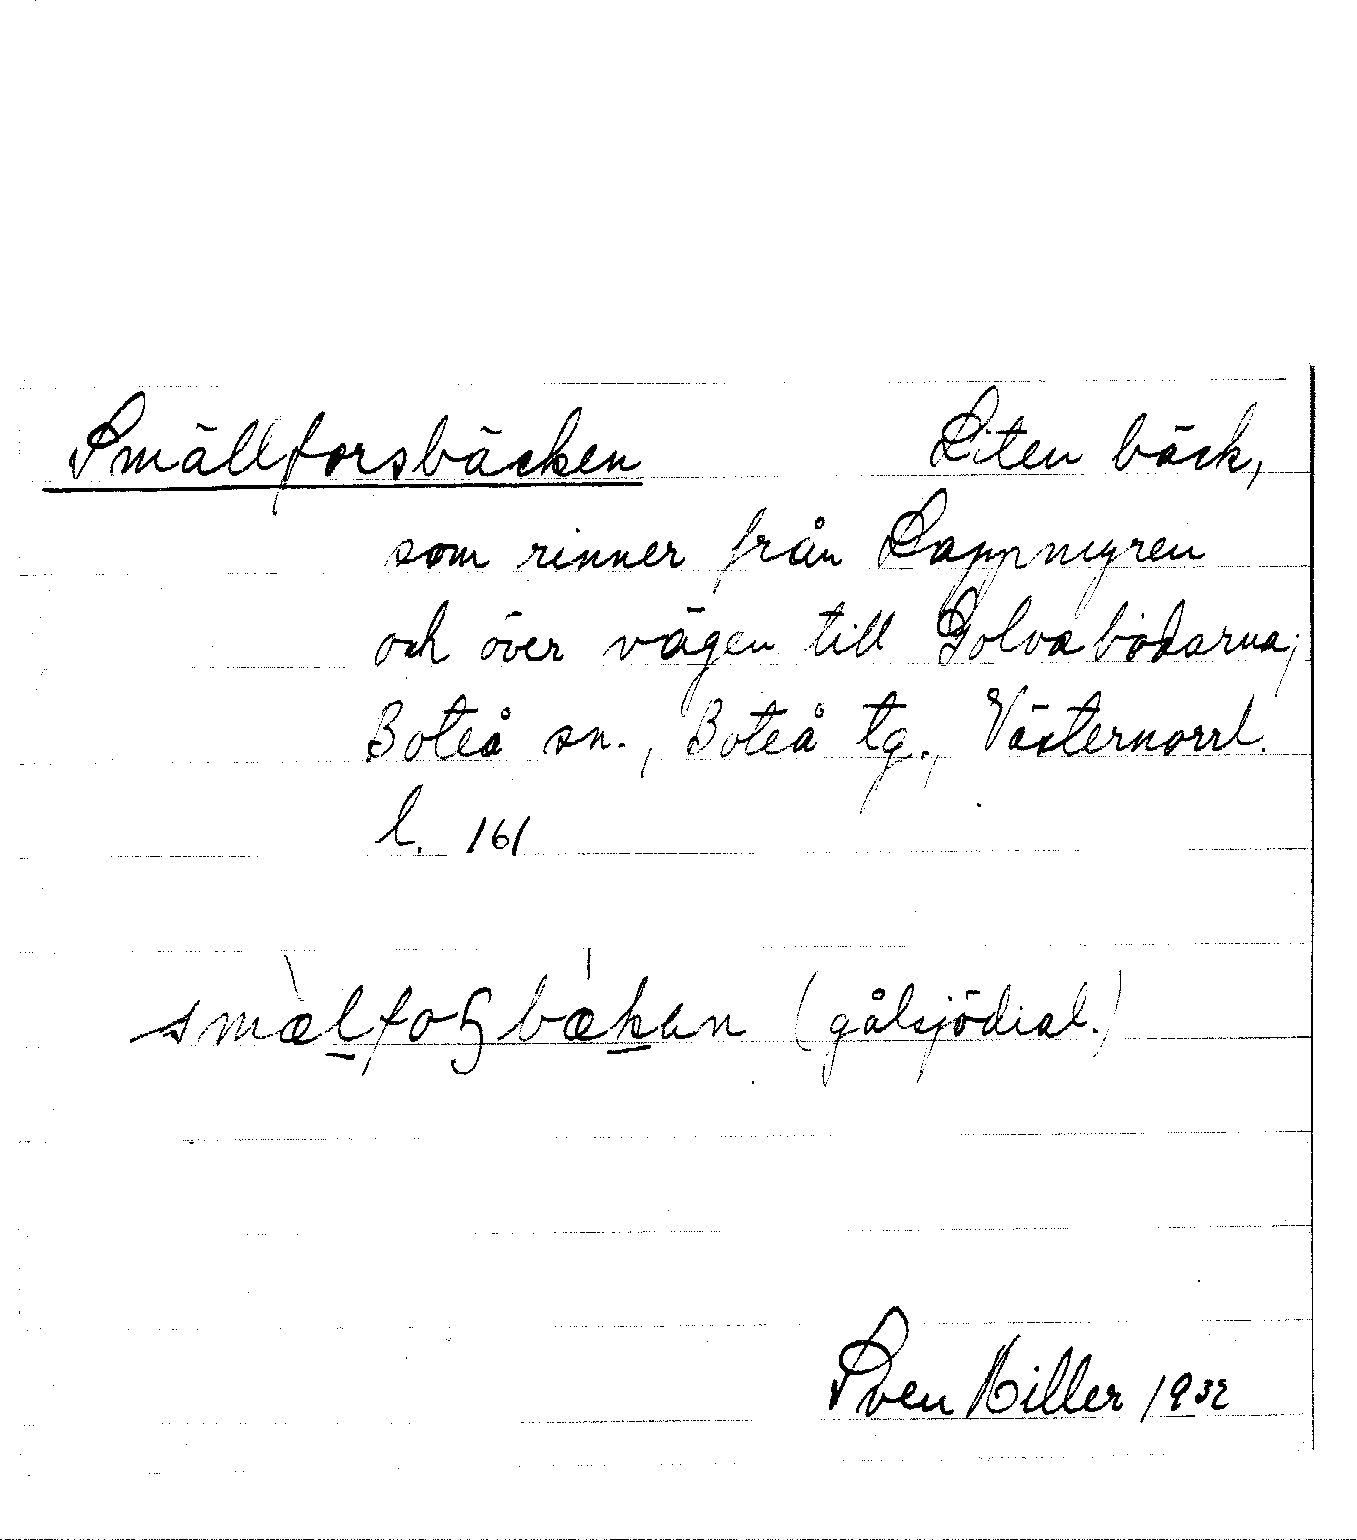 Smällforsbäcken Liten bäck,
som rinner från Lappmyren
och över vägen till Golvabodarna;
Boteå sn., Boteå tg., Västernorrl.
l. 161
(gålsjödial.)
Sven Hiller 1932